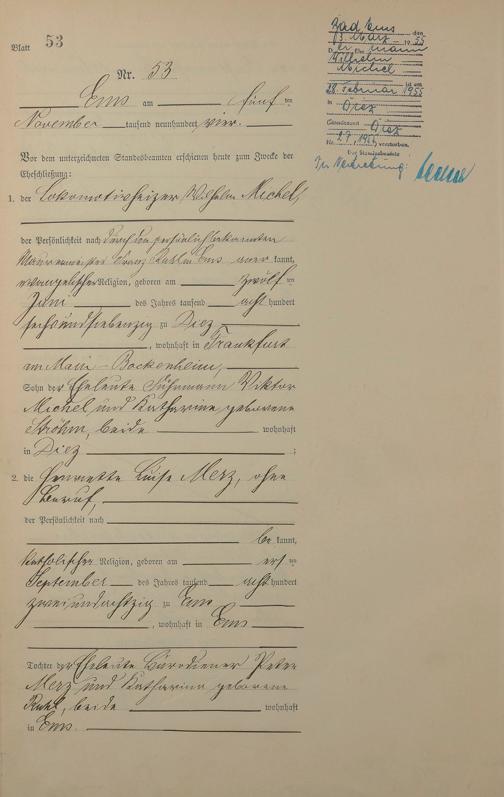 Blatt 53
Nr. 53
Ems am fünf ten
November tausend neunhundert vier.
Vor dem unterzeichneten Standesbeamten erschienen heute zum Zwecke der
Eheschließung:
1. der Lokomotivheizer Wilhelm Michel,
der Persönlichkeit nach durch den persönlich bekannten
Maurermeister Franz Ems aner kannt,
evangelischer Religion, geboren am zwölf ten
Juni des Jahres tausend acht hundert
sechsundsiebenzig zu Diez
, wohnhaft in Frankfurt
am Main - Bockenheim,
Sohn der Eheleute Viktor
Michel und Katharine geborene
Ströhm, beide wohnhaft
in Diez ;
2. die Henriette Luise Merz, ohne
Beruf,
der Persönlichkeit nach
be kannt,
katholischer Religion, geboren am ers ten
September des Jahres tausend acht hundert
zweiundachtzig zu Ems
, wohnhaft in Ems
Tochter der Eheleute Peter
Merz und Katharina geborene
beide wohnhaft
in Ems.
Bad Ems, den
3. März 1955
Der Ehemann
Wilhelm
Michel
ist am
28. Februar 1955
in Diez
Standesamt Diez
Nr. 27/1955 verstorben.
Der Standesbeamte
In Vertretung: